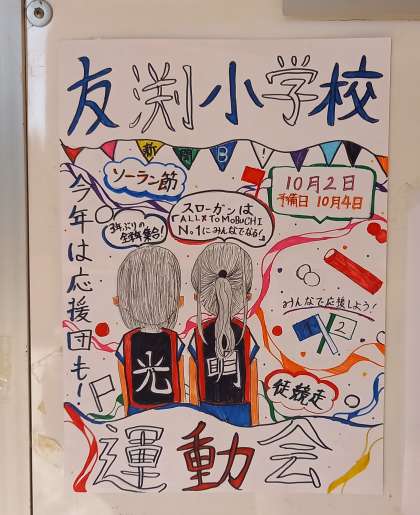 友渕小学校
新聞B!
ソーラン節
10月2日
予備日 10月4日
3年ぶりの
全学年集合!
スローガンは
「ALL☆ToMoBuCHI
No.1にみんなでなる!」
今年は応援団も!
みんなで応援しよう!
1 2
光
明
徒競走
運動会